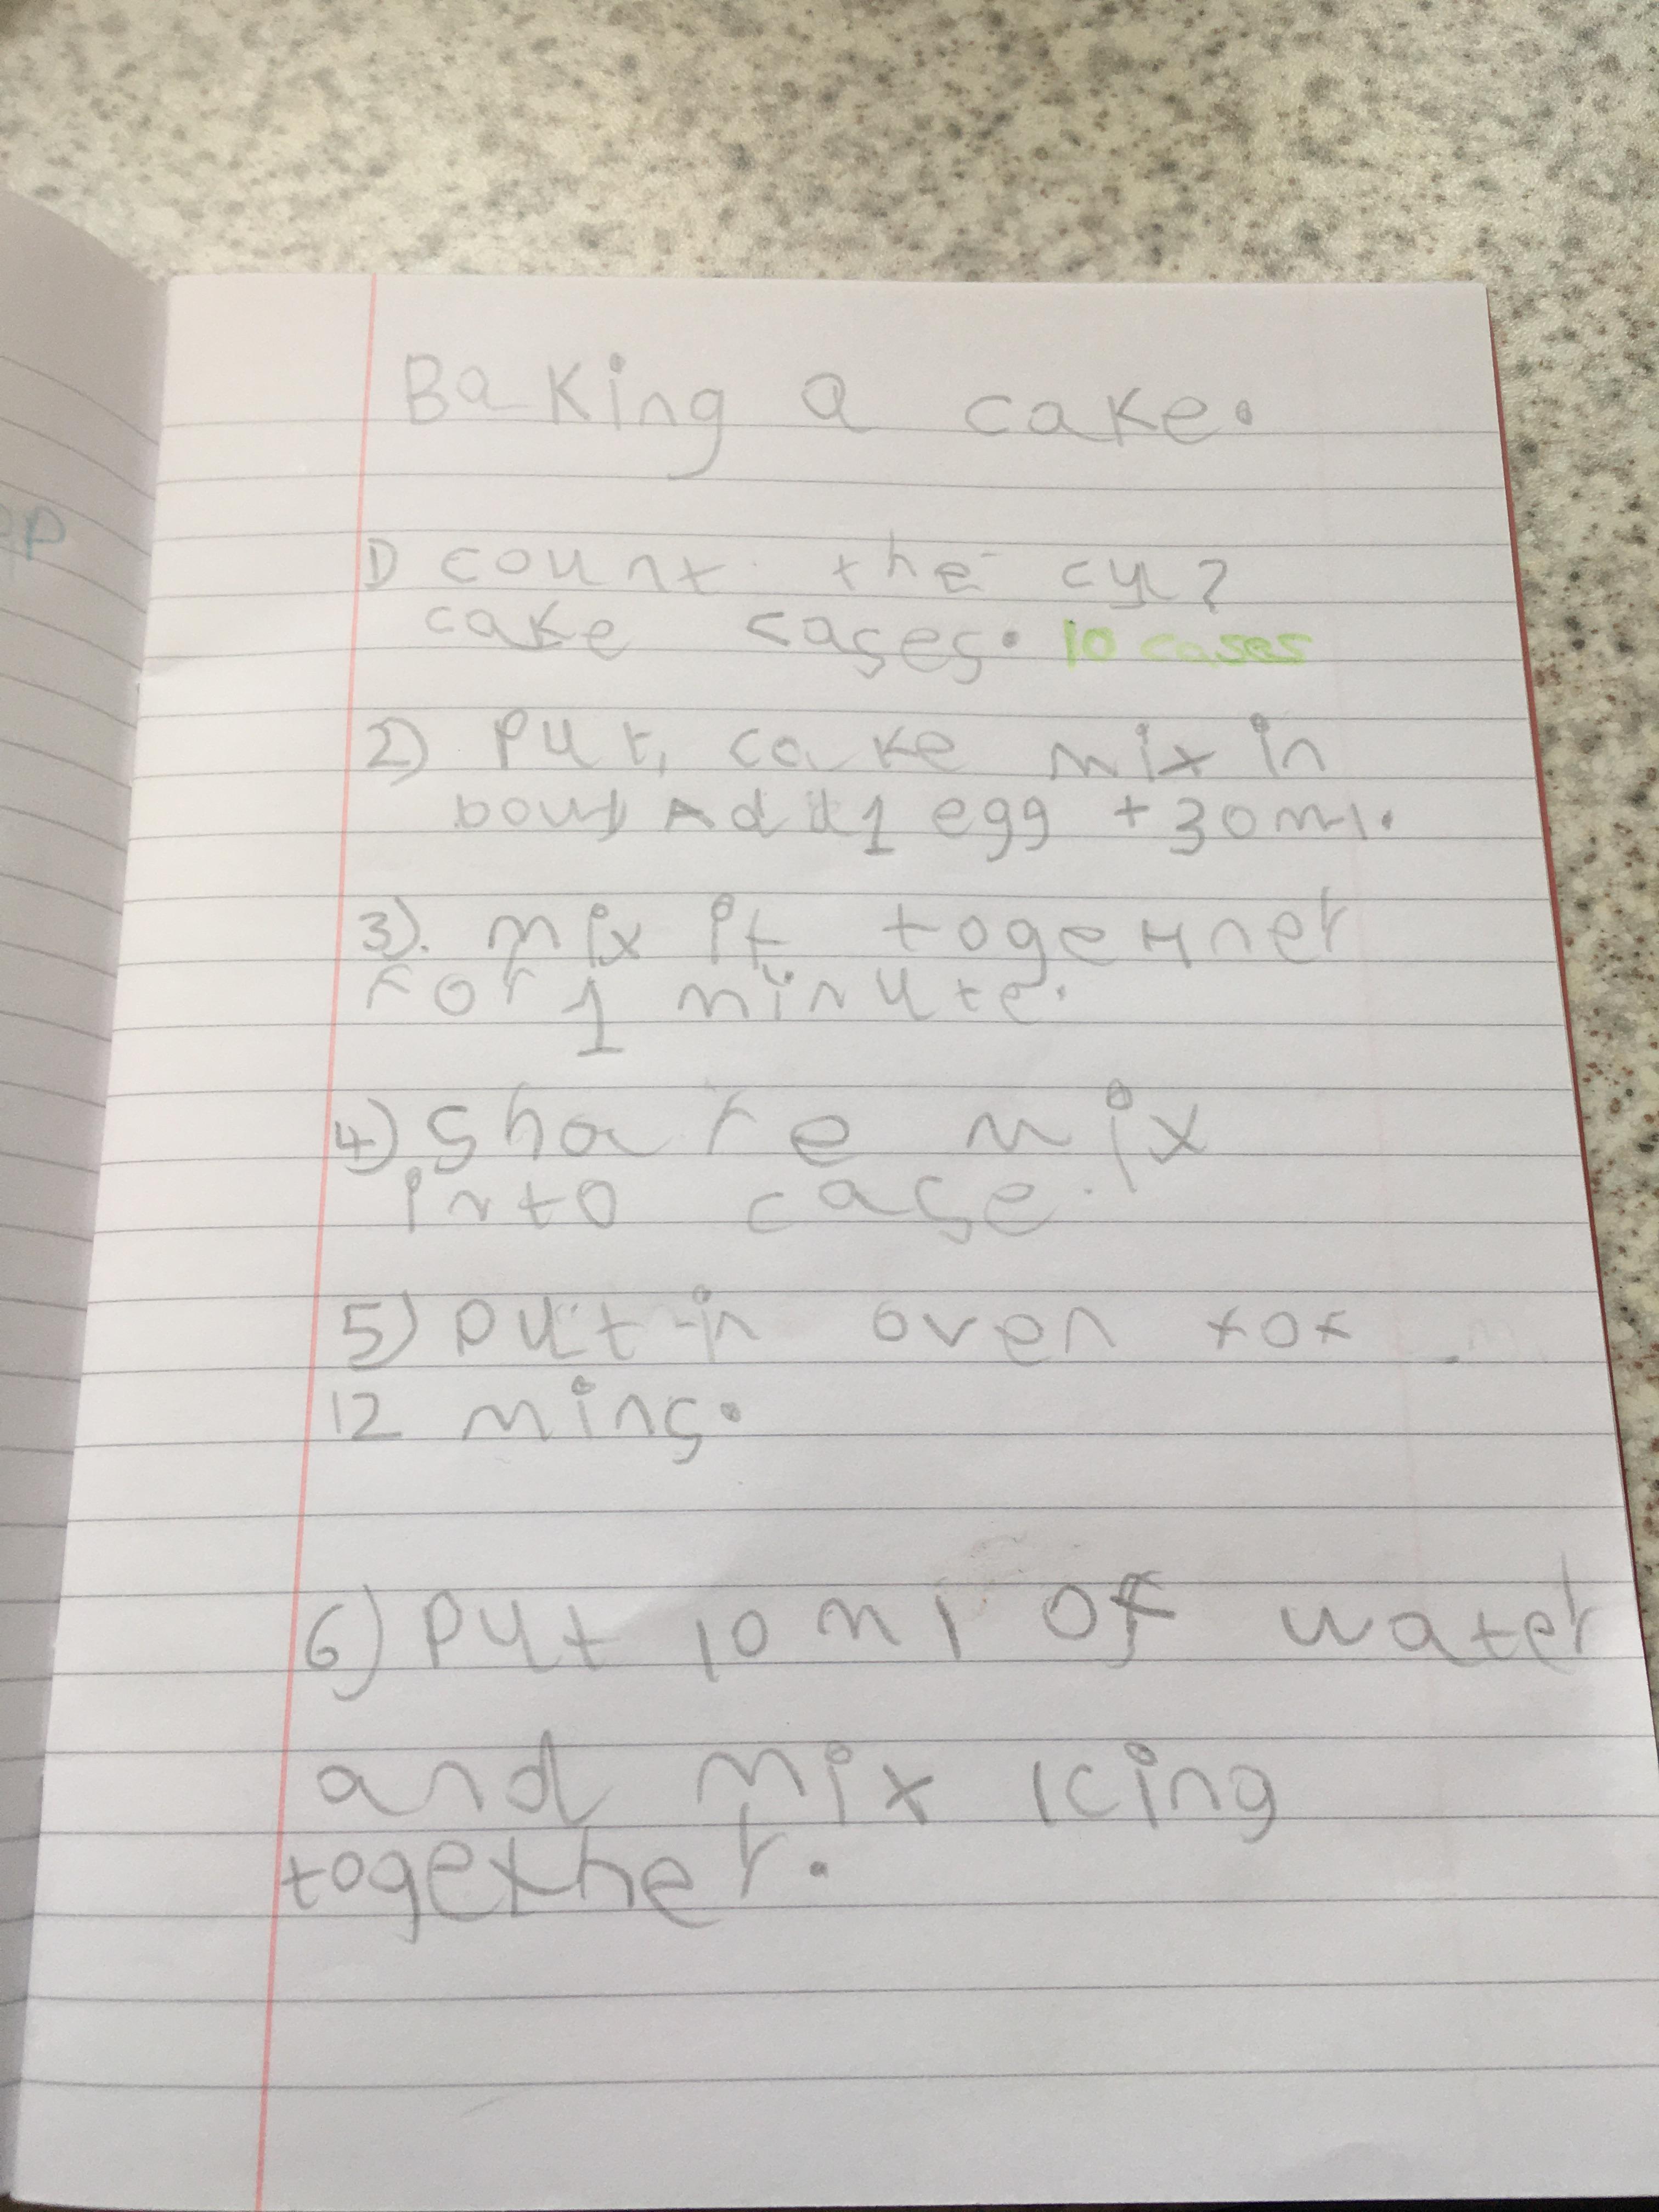 Baking a cake.
1) count the cu?
cake cases. 10 cases
2) Put cake mix in
Add 1 egg + 30ml.
3). mix it together
For 1 minute.
4) Share mix
into case.
5) put in oven for
12 mins.
6) Put 10 ml of water
and mix icing
together.